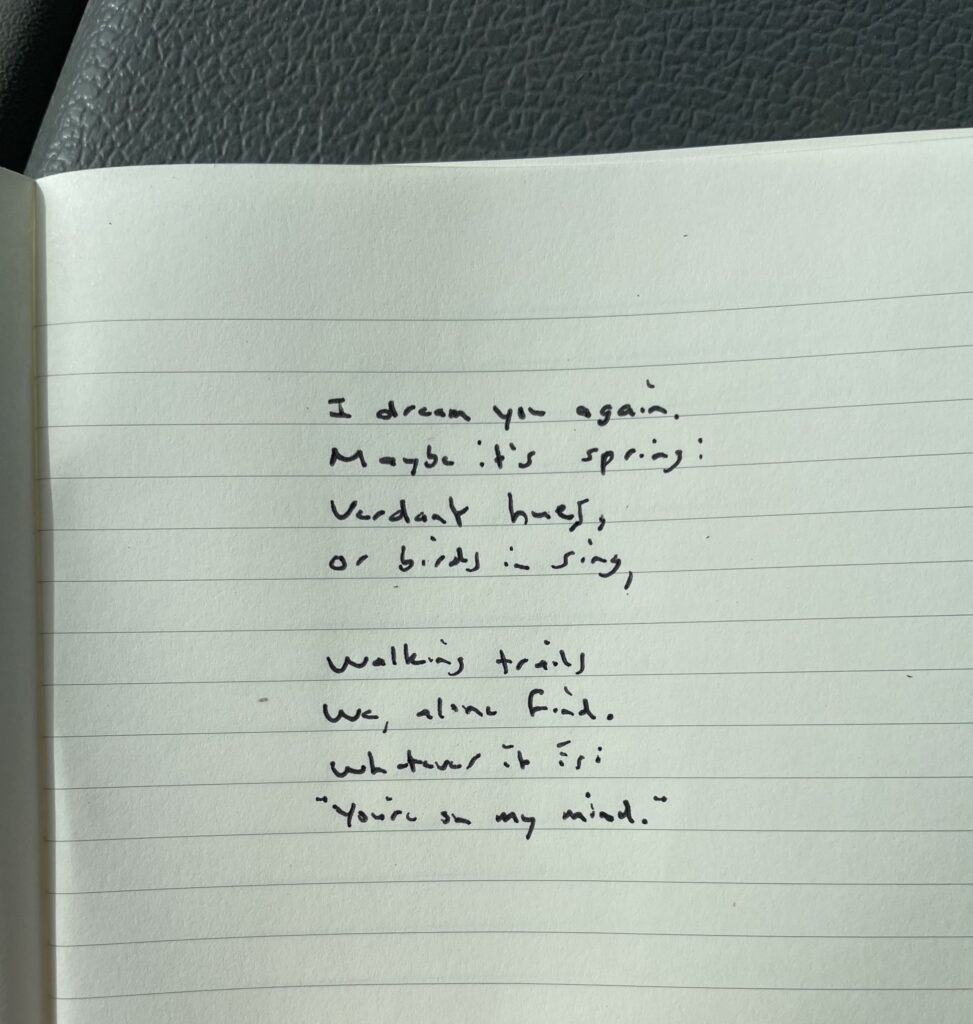 I dream you again.
Maybe it's spring:
Verdant hues,
or birds in sing,
Walking trails
We, alone find.
Whatever it is:
"You're on my mind."